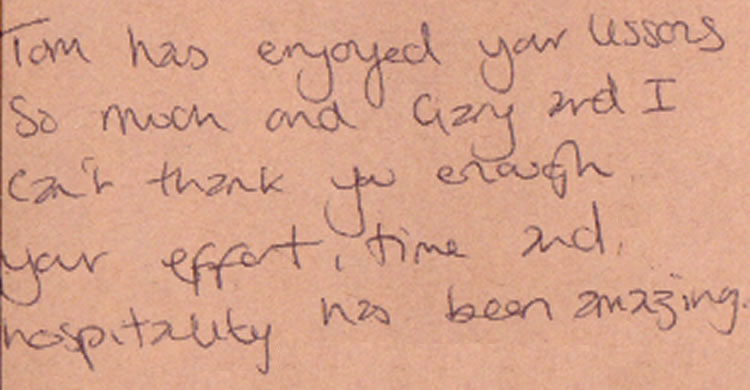 Tom has enjoyed your lessons
So much and Gary and I
Can't thank you enough
your effort, time and
hospitality has been amazing.